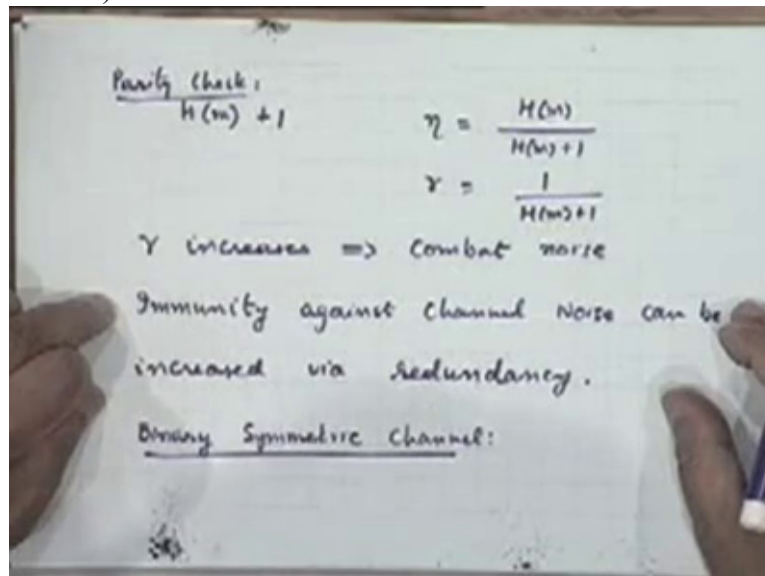 Parity Check:
H(m) + 1
η = H(m) / H(m) + 1
γ = 1 / H(m) + 1
γ increases => Combat noise
Immunity against Channel Noise can be
increased via redundancy.
Binary Symmetric Channel: